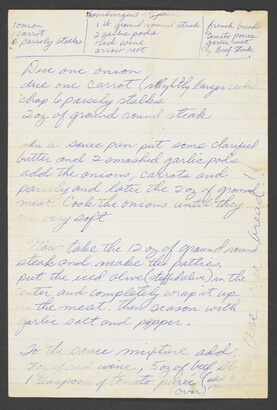 onion
carrot
parsely stalks
1 lb ground round steak
2 garlic pods
red wine
arrow root
french bread
tomato puree
garlic salt
Beef Stock
Dice one onion
dice one carrot (slightly larger cubes
chop 6 parsely stalks
2 oz of ground round steak
In a sauce pan put some clarified
butter and 2 smashed garlic pods
add the onions, carrots and
parsely and later the 2 oz of ground
meat. Cook the onions until they
are very soft
Now take the 12 oz of ground round
steak and make the patties.
put the iced olive (stuffed olive) in the
center and completely wrap it up
in the meat. then season with
garlic salt and pepper.
To the sauce mixture add:
oz of red wine, 5 oz of beef st
1 teaspoon of tomato puree
(over)